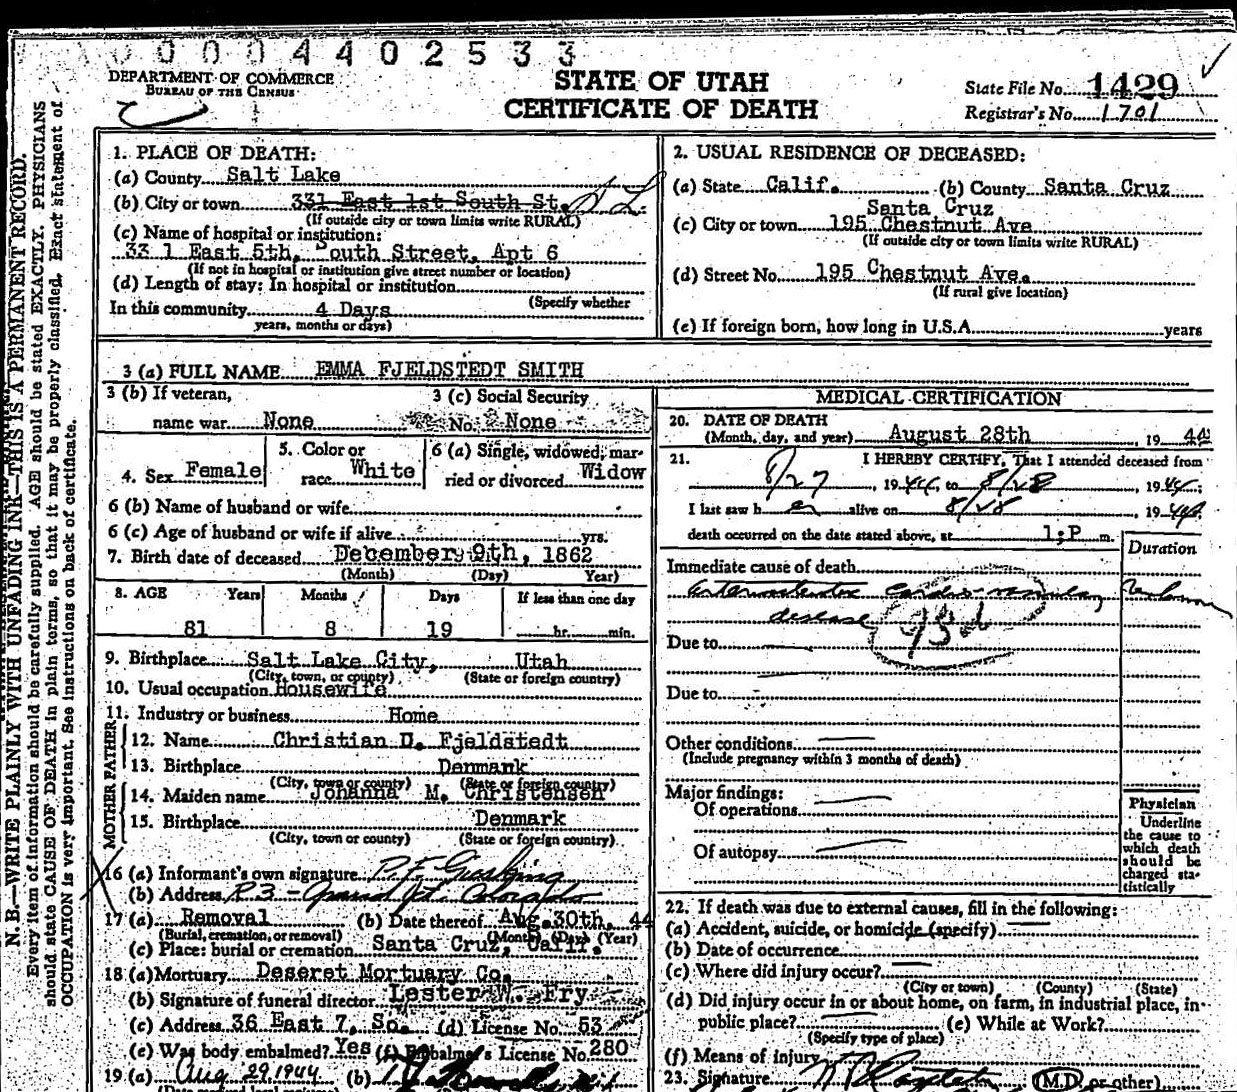 0 0 0 4 4 0 2 5 3 3
DEPARTMENT OF COMMERCE
BUREAU OF THE CENSUS
STATE OF UTAH
CERTIFICATE OF DEATH
State File No. 1429
Registrar's No. 1701
N. B.—WRITE PLAINLY WITH UNFADING INK—THIS IS A PERMANENT RECORD.
Every item of information should be carefully supplied. AGE should be stated EXACTLY. PHYSICIANS
should state CAUSE OF DEATH in plain terms, so that it may be properly classified. Exact statement of
OCCUPATION is very important. See instructions on back of certificate.
1. PLACE OF DEATH:
(a) County Salt Lake
(b) City or town 331 East 1st South St. S. L.
(If outside city or town limits write RURAL)
(c) Name of hospital or institution:
33 1 East 5th, South Street, Apt 6
(If not in hospital or institution give street number or location)
(d) Length of stay: In hospital or institution
(Specify whether
In this community 4 Days
years, months or days)
2. USUAL RESIDENCE OF DECEASED:
(a) State Calif. (b) County Santa Cruz
Santa Cruz
(c) City or town 195 Chestnut Ave
(If outside city or town limits write RURAL)
(d) Street No. 195 Chestnut Ave.
(If rural give location)
(e) If foreign born, how long in U.S.A. years
3 (a) FULL NAME EMMA FJELDSTEDT SMITH
3 (b) If veteran,
name war None
3 (c) Social Security
No. None
4. Sex Female
5. Color or
race White
6 (a) Single, widowed, mar-
ried or divorced Widow
6 (b) Name of husband or wife
6 (c) Age of husband or wife if alive yrs.
7. Birth date of deceased December 9th, 1862
(Month) (Day) Year)
8. AGE Years Months Days If less than one day
81 8 19 hr. min.
9. Birthplace Salt Lake City, Utah
(City, town, or county) (State or foreign country)
10. Usual occupation Housewife
11. Industry or business Home
FATHER
12. Name Christian D. Fjeldstedt
13. Birthplace Denmark
(City, town or county) (State or foreign country)
MOTHER
14. Maiden name Johanna M. Christensen
15. Birthplace Denmark
(City, town or county) (State or foreign country)
16 (a) Informant's own signature P. F.
(b) Address R 3 - Grand Jct. Colorado
17 (a) Removal (b) Date thereof Aug. 30th, 44
(Burial, cremation, or removal) (Month) (Day) (Year)
(c) Place: burial or cremation Santa Cruz, Calif.
18 (a) Mortuary Deseret Mortuary Co.
(b) Signature of funeral director Lester W. Fry
(c) Address 36 East 7, So. (d) License No. 53
(e) Was body embalmed? Yes (f) Embalmer's License No. 280
19 (a) Aug 29, 1944 (b)
MEDICAL CERTIFICATION
20. DATE OF DEATH
(Month, day, and year) August 28th, 19 44
21. I HEREBY CERTIFY, That I attended deceased from
8/27, 1944, to 8/28, 1944.
I last saw h er alive on 8/28, 1944
death occurred on the date stated above, at 1;P m.
Duration
Immediate cause of death
arteriosclerotic cardio-vascular Unknown
disease 93d
Due to
Due to
Other conditions
(Include pregnancy within 3 months of death)
Major findings:
Of operations
Of autopsy
Physician
Underline
the cause to
which death
should be
charged sta-
tistically
22. If death was due to external causes, fill in the following:
(a) Accident, suicide, or homicide (specify)
(b) Date of occurrence
(c) Where did injury occur?
(City or town) (County) (State)
(d) Did injury occur in or about home, on farm, in industrial place, in
public place? (e) While at Work?
(Specify type of place)
(f) Means of injury
23. Signature (M.D. or other)